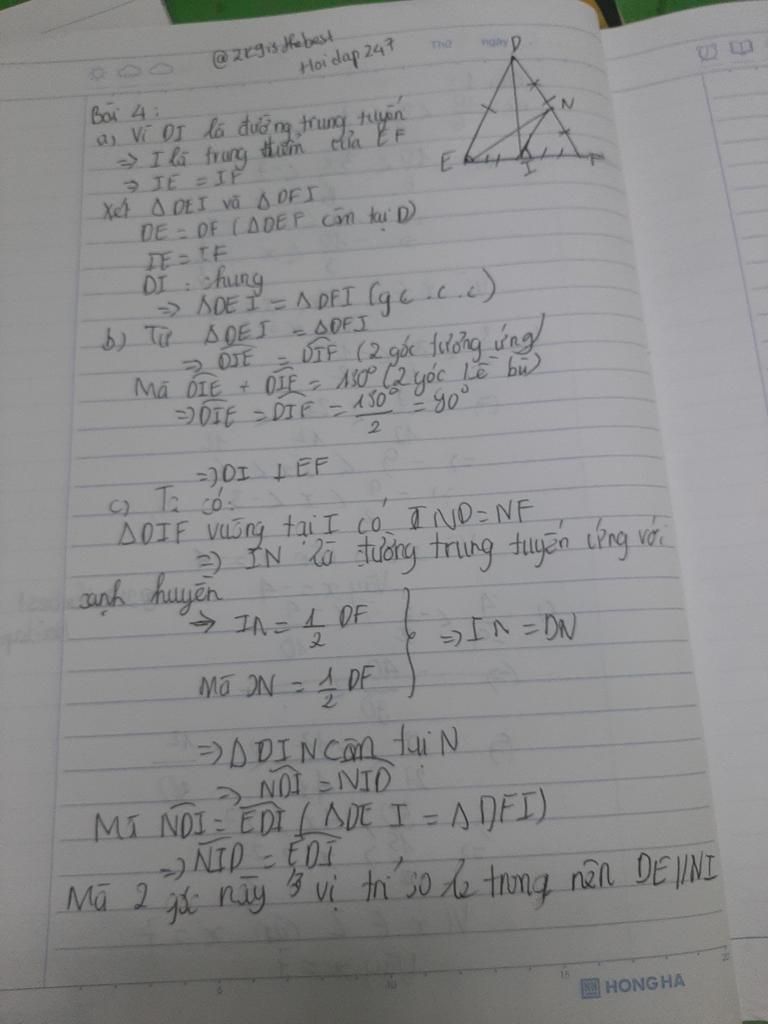 @2kgisthebest
Hoidap247
Thứ ngày
D
N
E
I
F
Bài 4:
a) Vì DI là đường trung tuyến
⇒ I là trung điểm của EF
⇒ IE = IF
Xét ΔDEI và ΔDFI
DE = DF (ΔDEF cân tại D)
IE = IF
DI : chung
⇒ ΔDEI = ΔDFI (g c.c.c)
b) Từ ΔDEI = ΔDFI
⇒ DIE = DIF (2 góc tương ứng)
Mà DIE + DIF = 180° (2 góc kề bù)
⇒ DIE = DIF = 180°/2 = 90°
⇒ DI ⊥ EF
c) Ta có:
ΔDIF vuông tại I có ND = NF
⇒ IN là đường trung tuyến ứng với
cạnh huyền
⇒ IN = 1/2 DF
⇒ IN = DN
Mà DN = 1/2 DF
⇒ ΔDIN cân tại N
⇒ NDI = NID
Mà NDI = EDI (ΔDEI = ΔDFI)
⇒ NID = EDI
Mà 2 góc này ở vị trí so le trong nên DE//NI
5
10
15
HONG HA